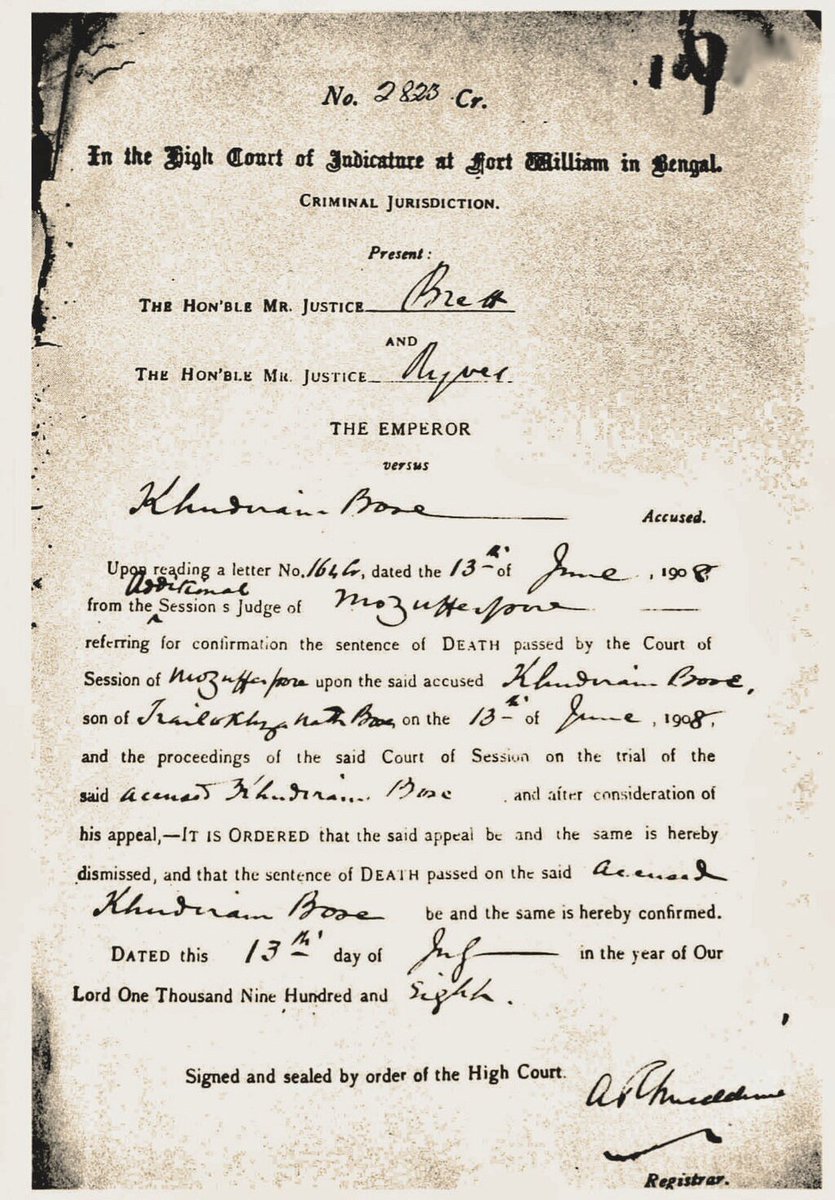 No. 2823 Cr.
In the High Court of Judicature at Fort William in Bengal.
CRIMINAL JURISDICTION.
Present:
THE HON'BLE MR. JUSTICE Brett
AND
THE HON'BLE MR. JUSTICE Ryves
THE EMPEROR
versus
Khudiram Bose Accused.
Upon reading a letter No. dated the 13th of June, 1908
from the Additional Sessions Judge of Mozufferpore
referring for confirmation the sentence of DEATH passed by the Court of
Session of Mozufferpore upon the said accused Khudiram Bose,
son of Nath Bose on the 13th of June, 1908,
and the proceedings of the said Court of Session on the trial of the
said accused Khudiram Bose and after consideration of
his appeal,—IT IS ORDERED that the said appeal be and the same is hereby
dismissed, and that the sentence of DEATH passed on the said accused
Khudiram Bose be and the same is hereby confirmed.
DATED this 13th day of July in the year of Our
Lord One Thousand Nine Hundred and Eight.
Signed and sealed by order of the High Court.
Registrar.